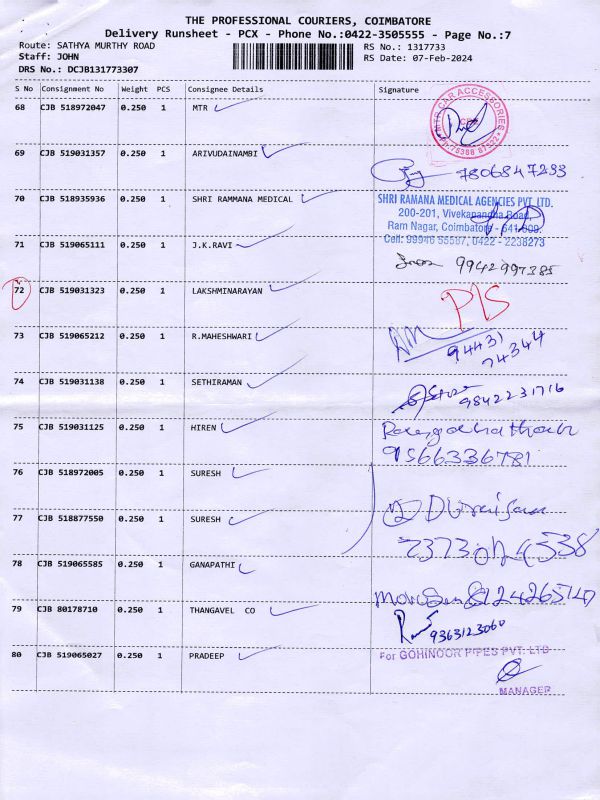 THE PROFESSIONAL COURIERS, COIMBATORE
Delivery Runsheet - PCX - Phone No.:0422-3505555 - Page No.:7
Route: SATHYA MURTHY ROAD RS No.: 1317733
Staff: JOHN RS Date: 07-Feb-2024
DRS No.: DCJB131773307
S No Consignment No Weight PCS Consignee Details Signature
68 CJB 518972047 0.250 1 MTR
MTR CAR ACCESSORIES
69 CJB 519031357 0.250 1 ARIVUDAINAMBI
7806847293
70 CJB 518935936 0.250 1 SHRI RAMMANA MEDICAL
SHRI RAMANA MEDICAL AGENCIES PVT. LTD.
200-201, Vivekanandha Road,
Ram Nagar, Coimbatore - 641 009.
Cell: 99946 55587, 0422 - 2238273
71 CJB 519065111 0.250 1 J.K.RAVI
9942997385
72 CJB 519031323 0.250 1 LAKSHMINARAYAN
P/S
73 CJB 519065212 0.250 1 R.MAHESHWARI
94431
74344
74 CJB 519031138 0.250 1 SETHIRAMAN
9842231716
75 CJB 519031125 0.250 1 HIREN
9566336781
76 CJB 518972005 0.250 1 SURESH
77 CJB 518877550 0.250 1 SURESH
78 CJB 519065585 0.250 1 GANAPATHI
8124265147
79 CJB 80178710 0.250 1 THANGAVEL CO
9363123060
80 CJB 519065027 0.250 1 PRADEEP
For GOHINOOR PIPES PVT. LTD
MANAGER